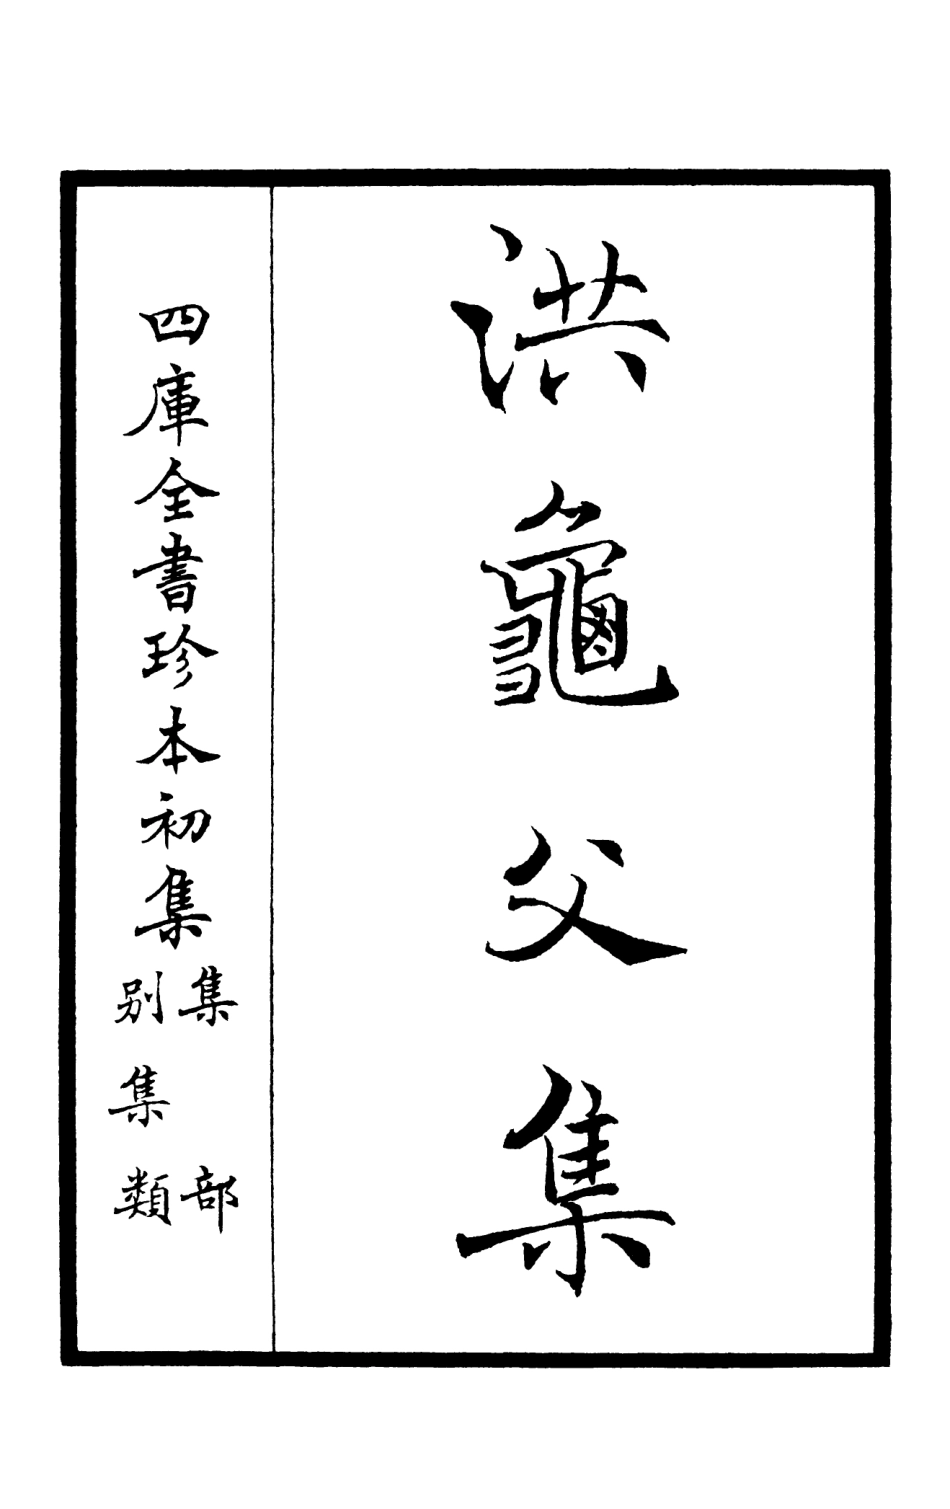 洪龜父集
四庫全書珍本初集
集部
別集類